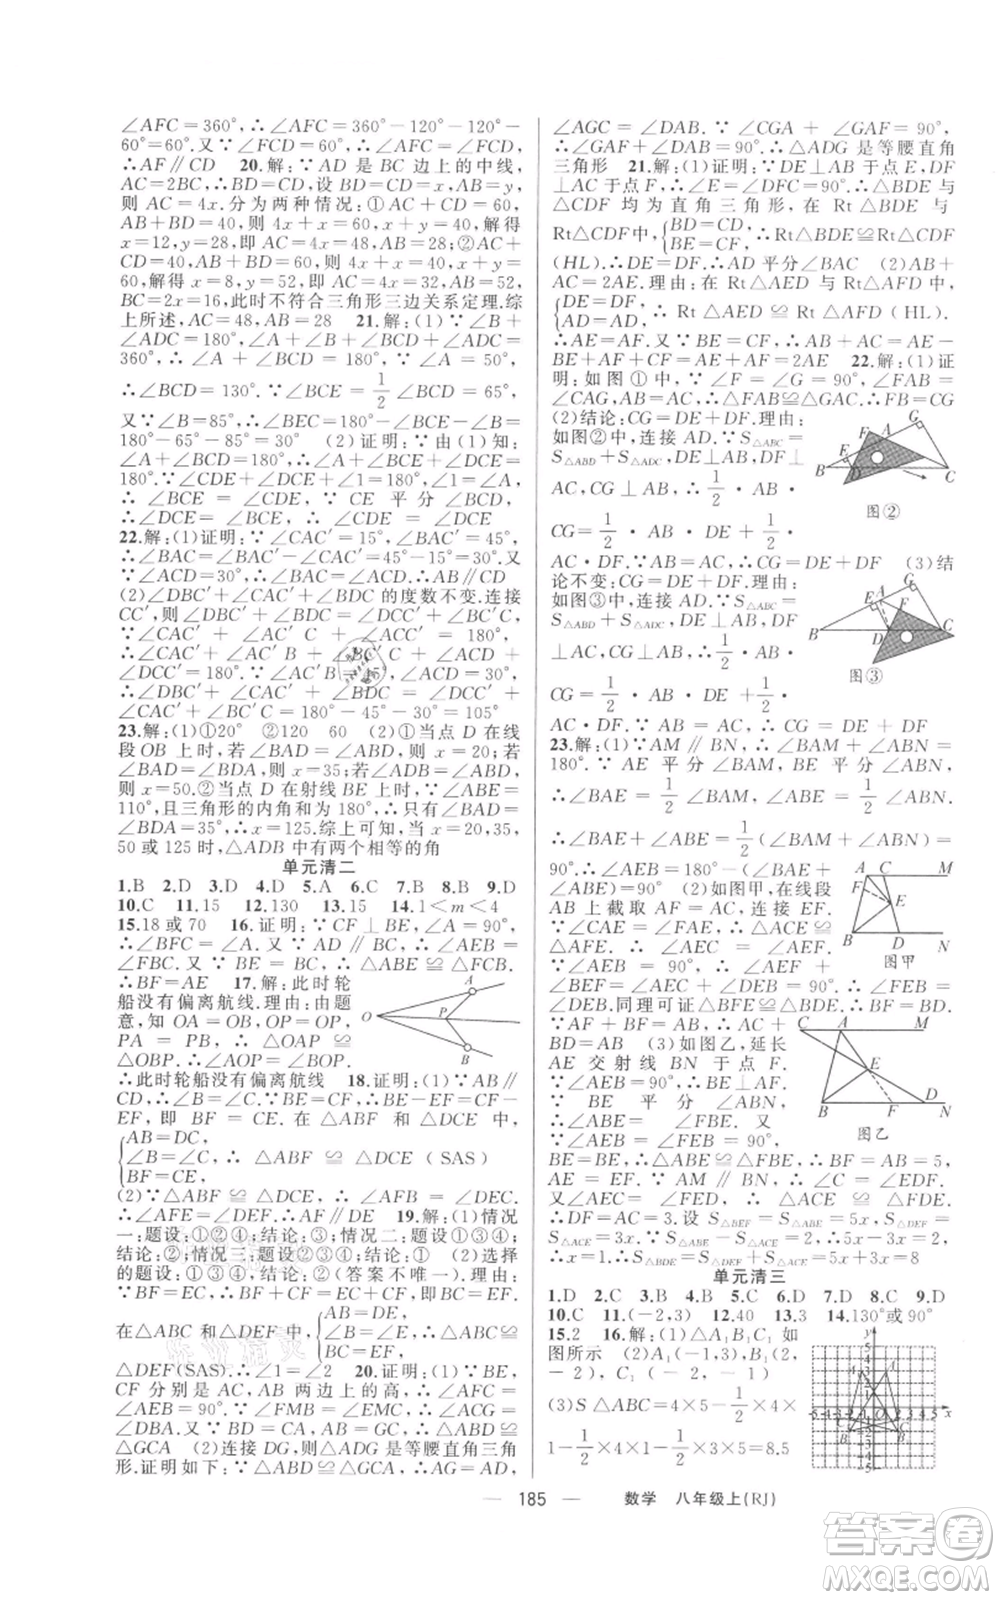 ∠AFC=360°,∴∠AFC=360°-120°-120°-
60°=60°.又∵∠FCD=60°,∴∠AFC=∠FCD,
∴AF∥CD 20.解:∵AD 是 BC 边上的中线,
AC=2BC,∴BD=CD,设 BD=CD=x,AB=y,
则 AC=4x.分为两种情况:①AC+CD=60,
AB+BD=40,则 4x+x=60,x+y=40,解得
x=12,y=28,即 AC=4x=48,AB=28;②AC+
CD=40,AB+BD=60,则 4x+x=40,x+y=
60,解得 x=8,y=52,即 AC=4x=32,AB=52,
BC=2x=16,此时不符合三角形三边关系定理.综
上所述,AC=48,AB=28 21.解:(1)∵∠B+
∠ADC=180°,∠A+∠B+∠BCD+∠ADC=
360°,∴∠A+∠BCD=180°,∵∠A=50°,
∴∠BCD=130°.∵∠BCE=1/2∠BCD=65°,
又∵∠B=85°,∴∠BEC=180°-∠BCE-∠B=
180°-65°-85°=30° (2)证明:∵由(1)知:
∠A+∠BCD=180°,∴∠A+∠BCE+∠DCE=
180°.∵∠CDE+∠DCE+∠1=180°,∠1=∠A,
∴∠BCE=∠CDE,∵CE 平分∠BCD,
∴∠DCE=∠BCE,∴∠CDE=∠DCE
22.解:(1)证明:∵∠CAC′=15°,∠BAC′=45°,
∴∠BAC=∠BAC′-∠CAC′=45°-15°=30°.又
∵∠C′AD=30°,∴∠BAC=∠C′AD
(2)∠BDC′+∠CAC′+∠BDC 的度数不变.连接
CC′,则∠BDC+∠BDC′=∠DCC′+∠DC′C.
∵∠CAC′+∠AC′C+∠ACC′=180°,
∴∠CAC′+∠AC′B+∠ACD+∠DC′C+
∠DCC′=180°.∵∠AC′B=45°,
∴∠CAC′+∠BDC′+∠BDC=
180°-45°-30°=105°
23.解:(1)①20° ②120 60 (2)①当点 D 在线
段 OB 上时,若∠BAD=∠ABD,则 x=20;若
∠BAD=∠BDA,则 x=35;若∠ADB=∠ABD,则
x=50.②当点 D 在射线 BE 上时,∵∠ABE=
110°,且三角形的内角和为 180°,∴只有∠BAD=
∠BDA=35°,∴x=125.综上可知,当 x=20,35,
50 或 125 时,△ADB 中有两个相等的角
单元清二
1.B 2.D 3.D 4.D 5.A 6.C 7.B 8.B 9.D
10.C 11.15 12.130 13.15 14.1<m<4
15.18 或 70 16.证明:∵CF⊥BE,∠A=90°,
∴∠BFC=∠A.又∵AD∥BC,∴∠AEB=
∠FBC.又∵BE=BC,∴△ABE≌△FCB.
∴BF=AE 17.解:此时轮
船没有偏离航线.理由:由题
意,知 OA=OB,OP=OP,
PA=PB,∴△OAP≌
△OBP.∴∠AOP=∠BOP.
∴此时轮船没有偏离航线 18.证明:(1)∵AB∥
CD,∴∠B=∠C.∵BE=CF,∴BE-EF=CF-
EF,即 BF=CE.在△ABF 和△DCE 中,
{AB=DC,
∠B=∠C,∴△ABF≌△DCE(SAS)
BF=CE,
(2)∵△ABF≌△DCE,∴∠AFB=∠DEC.
∴∠AFE=∠DEF.∴AF∥DE 19.解:(1)情况
一:题设:①②④;结论:③;情况二:题设:①③④;
结论:②;情况三:题设:②③④;结论:① (2)选择
的题设:①③④;结论:②(答案不唯一).证明:∵
BF=EC,∴BF+CF=EC+CF,即 BC=EF,
在△ABC 和△DEF 中,{AB=DE,
∠B=∠E,∴△ABC≌
BC=EF,
△DEF(SAS).∴∠1=∠2 20.证明:(1)∵BE,
CF 分别是 AC,AB 两边上的高,∴∠AFC=
∠AEB=90°.∴∠ABM=∠GCA.在△ABD 和
△GCA 中,BD=CA,∴△ABD≌
△GCA (2)连接 DG,则△ADG 是等腰直角三角
形.证明如下:∵△ABD≌△GCA,∴AG=AD,
∠AGC=∠DAB.∵∠CGA+∠GAF=90°,
∴∠GAF+∠DAB=90°,∴△ADG 是等腰直角
三角形 21.解:(1)证明:∵DE⊥AB 于点 E,DF
⊥AC 于点 F,∴∠E=∠DFC=90°.∴△BDE 与
△CDF 均为直角三角形,在 Rt△BDE 与
Rt△CDF中,{BD=CD,
BE=CF,∴Rt△BDE≌Rt△CDF
(HL).∴DE=DF.∴AD 平分∠BAC (2)AB+
AC=2AE.理由:在 Rt△AED 与 Rt△AFD 中,
{DE=DF,
AD=AD,∴Rt△AED≌Rt△AFD(HL).
∴AE=AF.又∵BE=CF,∴AB+AC=AE-
BE+AF+CF=AE+AF=2AE 22.解:(1)证
明:如图①中,∵∠F=∠G=90°,∠FAB=
∠CAG,AB=AC,∴△FAB≌△GAC.∴FB=CG
(2)结论:CG=DE+DF.理由:
如图②中,连接 AD.∵S△ABC=
S△ABD+S△ADC,DE⊥AB,DF⊥
AC,CG⊥AB,∴1/2·AB·
CG=1/2·AB·DE+1/2·
AC·DF.∵AB=AC,∴CG=DE+DF (3)结
论不变:CG=DE+DF.理由:
如图③中,连接 AD.∵S△ABC=
S△ABD+S△ADC,DE⊥AB,DF
⊥AC,CG⊥AB,∴1/2·AB·
CG=1/2·AB·DE+1/2·
AC·DF.∵AB=AC,∴CG=DE+DF
23.解:(1)∵AM∥BN,∴∠BAM+∠ABN=
180°.∵AE 平分∠BAM,BE 平分∠ABN,
∴∠BAE=1/2∠BAM,∠ABE=1/2∠ABN.
∴∠BAE+∠ABE=1/2(∠BAM+∠ABN)=
90°.∴∠AEB=180°-(∠BAE+
∠ABE)=90° (2)如图甲,在线段
AB 上截取 AF=AC,连接 EF.
∵∠CAE=∠FAE,∴△ACE≌
△AFE.∴∠AEC=∠AEF.
∵∠AEB=90°,∴∠AEF+
∠BEF=∠AEC+∠BED=90°,∴∠FEB=
∠DEB.同理可证△BFE≌△BDE.∴BF=BD.
∵AF+BF=AB,∴AC+
BD=AB (3)如图乙,延长
AE 交射线 BN 于点 F.
∵∠AEB=90°,∴BE⊥AF.
∵BE 平分∠ABN,
∴∠ABE=∠FBE.又
∵∠AEB=∠FEB=90°,
BE=BE,∴△ABE≌△FBE,∴BF=AB=5,
AE=EF.∵AM∥BN,∴∠C=∠EDF.又
∵∠AEC=∠FED,∴△ACE≌△FDE.
∴DF=AC=3.设 S△BEF=S△ABE=5x,S△DEF=
S△ACE=3x.∵S△ABE-S△BDE=2,∴5x-(5x-3x)=2,
∴x=1.∴S△BDE=5x+3x=8
单元清三
1.D 2.C 3.C 4.B 5.C 6.D 7.D 8.C 9.D
10.C 11.(-2,3) 12.40 13.3 14.130°或90°
15.2 16.解:(1)△A₁B₁C₁ 如
图所示 (2)A₁(-1,3),B₁(2,
-2),C₁(-2,-1)
(3)S△ABC=4×5-1/2×4×
1-1/2×4×1-1/2×3×5=8.5
图②
图③
图甲
图乙
185
数学 八年级上(RJ)
答案圈
MXQE.COM